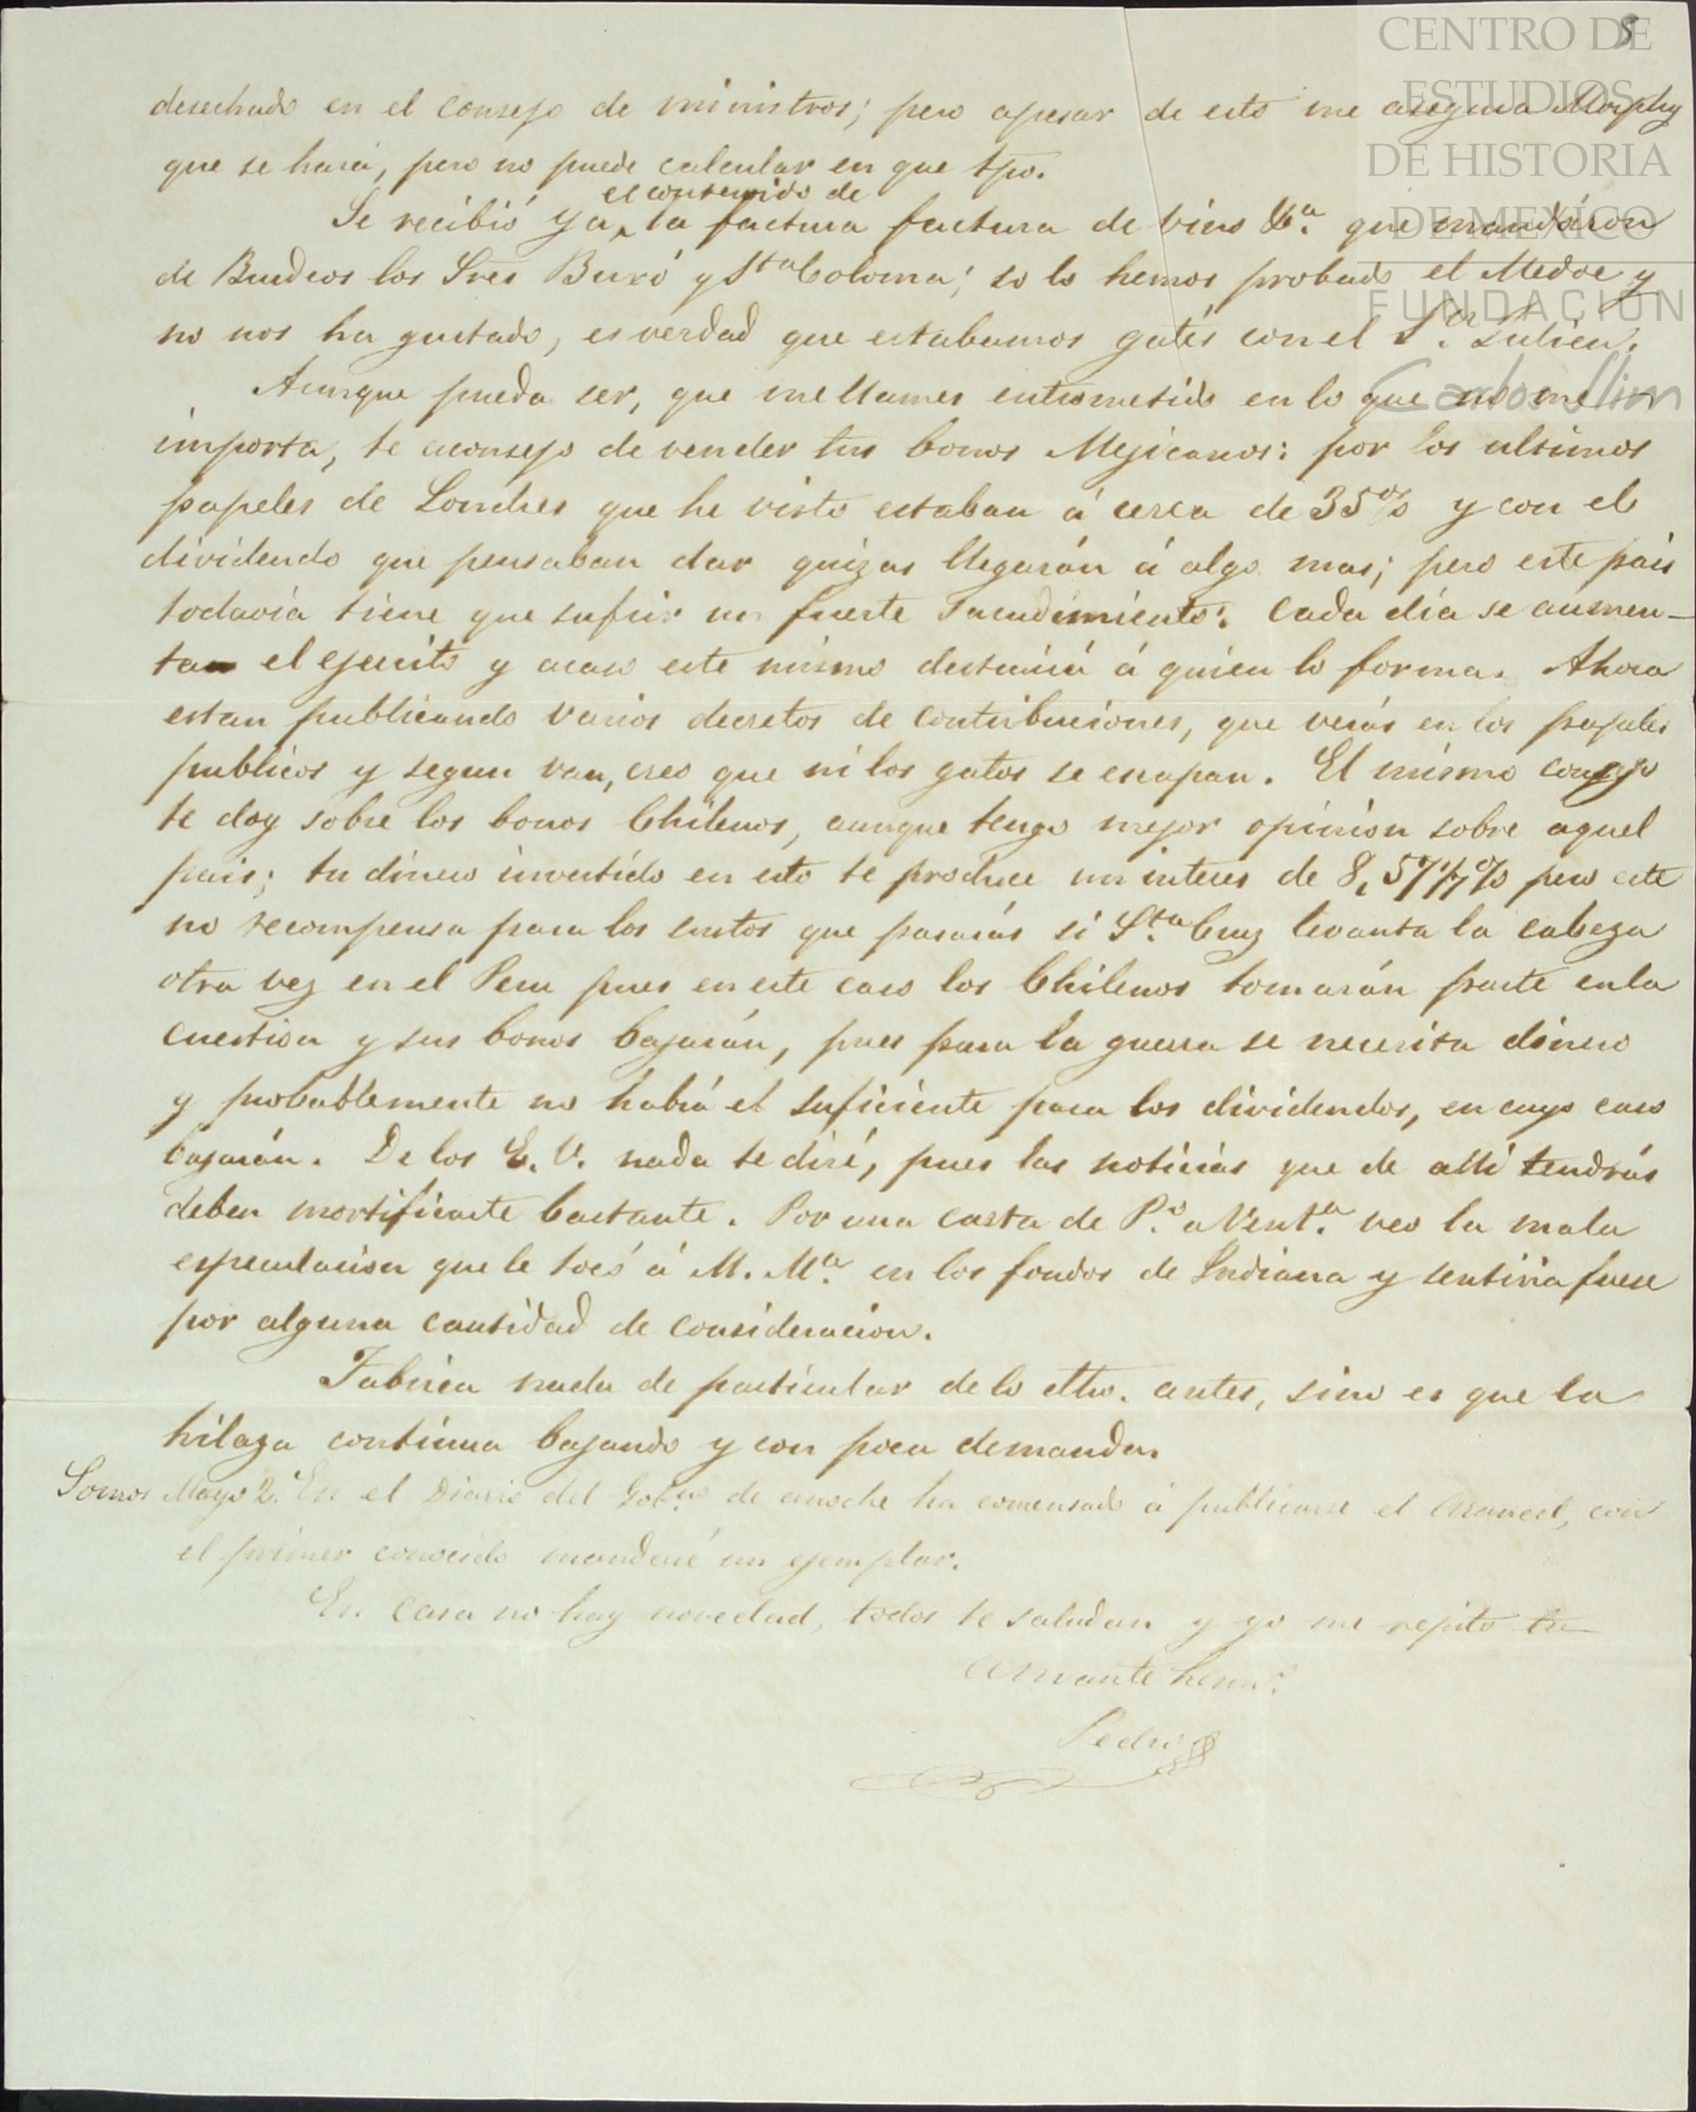 CENTRO DE
ESTUDIOS
DE HISTORIA
DE MEXICO
FUNDACIÓN
Carlos Slim
desechado en el consejo de ministros; pero apesar de esto me asegura Morphy
que se hará, pero no puede calcular en que tpo.
el contenido de
Se recibió ya la factura factura de vino &a. que mandáron
de Burdeos los Sres Buró y Sta Coloma; solo hemos probado el Medoc y
no nos ha gustado, es verdad que estabamos con el Sn. Julien.
Aunque pueda ser, que me llames entrometido en lo que no me
importa, te aconsejo de vender tus bonos Mejicanos: por los ultimos
papeles de Londres que he visto estaban á cerca de 35% y con el
dividendo que pensaban dar quizas llegarán á algo mas; pero este pais
todavia tiene que sufrir un fuerte sacudimiento: cada dia se aumen-
tan el ejercito y acaso este mismo destruirá á quien lo forma. Ahora
estan publicando varios decretos de contribuciones, que verás en los papeles
publicos y segun van, creo que ni los gatos se escapan. El mismo consejo
te doy sobre los bonos Chilenos, aunque tengo mejor opinion sobre aquel
pais; tu dinero invertido en esto te produce un interes de 8,57 1/7% pero este
no recompensa para los sustos que pasarás si Sta. Cruz levanta la cabeza
otra vez en el Peru pues en este caso los Chilenos tomarán parte en la
cuestion y sus bonos bajarán, pues para la guerra se necesita dinero
y probablemente no habrá el suficiente para los dividendos, en cuyo caso
bajarán. De los E. U. nada te diré, pues las noticias que de alli tendrás
deben mortificarte bastante. Por una carta de P.o a Vent.a veo la mala
especulacion que le tocó á M. Ma. en los fondos de Indiana y sentiria fuese
por alguna cantidad de consideracion.
Fabrica nada de particular de lo dho. antes, sino es que la
hilaza continua bajando y con poca demanda.
Somos Mayo 2. En el Diario del Gobno de anoche ha comensado á publicarse el Arancel, con
el primer conocido mandaré un ejemplar.
En casa no hay novedad, todos te saludan y yo me repito tu
amante herm.o
Pedro